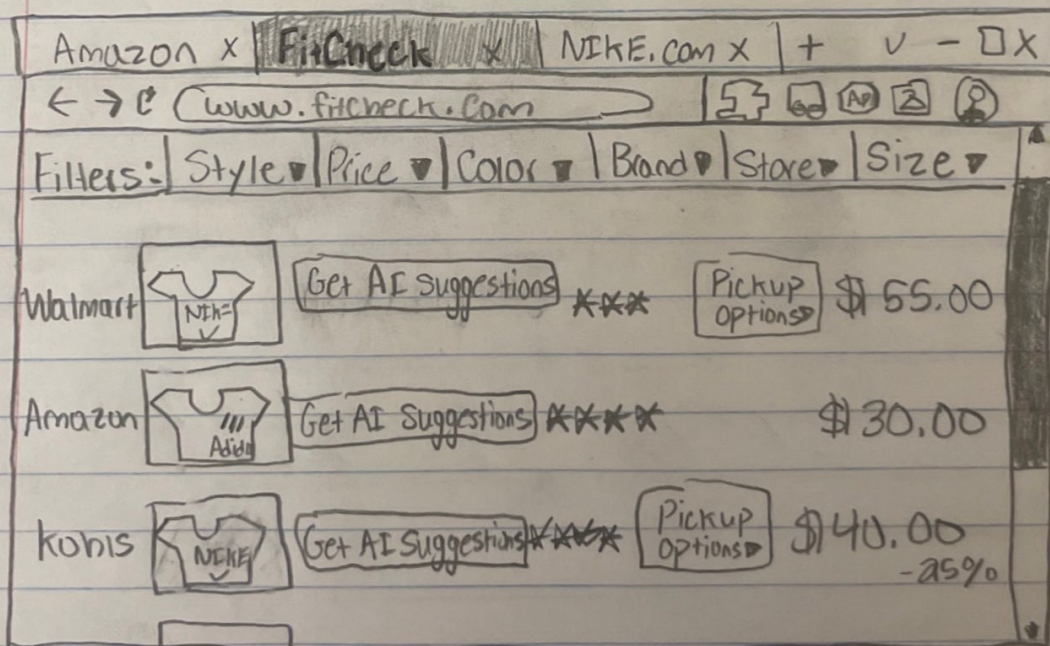 Amazon x FitCheck x NIKE.com x + v - X
www.fitcheck.com AP
Filters: Style Price Color Brand Store Size
Walmart NIKE Get AI suggestions *** Pickup Options $55.00
Amazon Adidas Get AI Suggestions **** $30.00
Kohls NIKE Get AI Suggestions **** Pickup Options $40.00
-25%